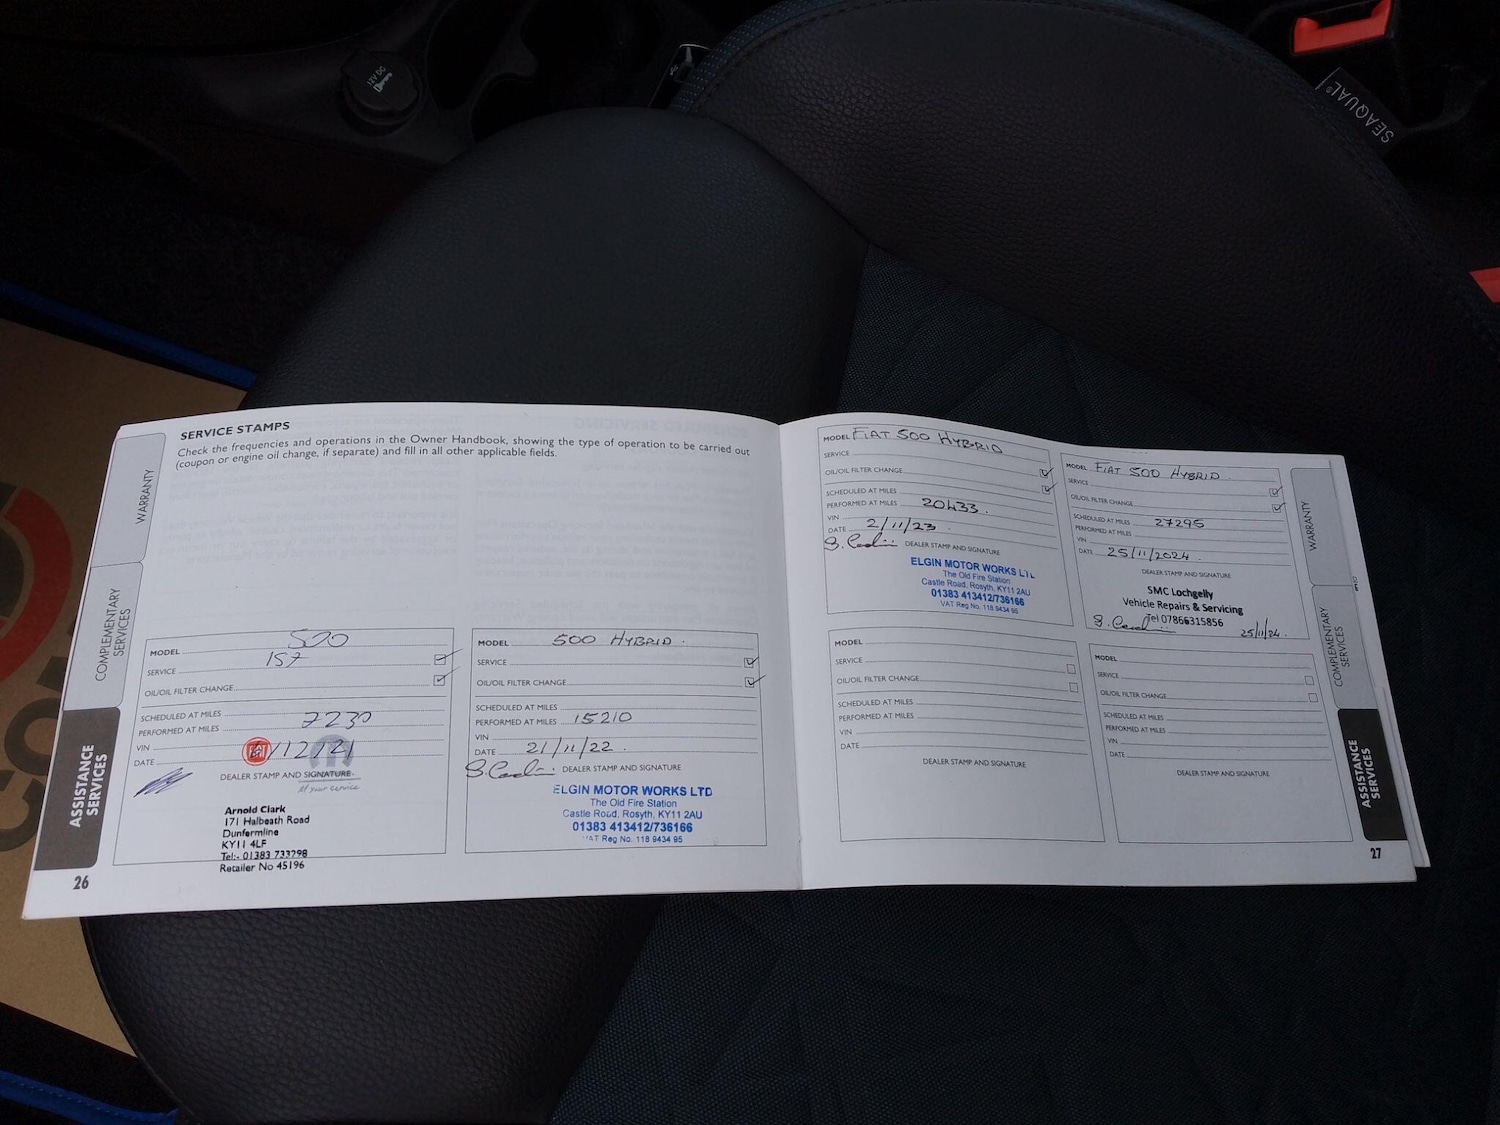 12V DC
SEAQUAL®
SERVICE STAMPS
Check the frequencies and operations in the Owner Handbook, showing the type of operation to be carried out
(coupon or engine oil change, if separate) and fill in all other applicable fields.
WARRANTY
COMPLEMENTARY
SERVICES
ASSISTANCE
SERVICES
MODEL 500
157
SERVICE
OIL/OIL FILTER CHANGE
SCHEDULED AT MILES
PERFORMED AT MILES 7230
VIN
DATE /12/21
DEALER STAMP AND SIGNATURE
At your service
Arnold Clark
171 Halbeath Road
Dunfermline
KY11 4LF
Tel:- 01383 733298
Retailer No 45196
26
MODEL 500 HYBRID.
SERVICE
OIL/OIL FILTER CHANGE
SCHEDULED AT MILES
PERFORMED AT MILES 15210
VIN
DATE 21/11/22.
DEALER STAMP AND SIGNATURE
ELGIN MOTOR WORKS LTD
The Old Fire Station
Castle Road, Rosyth, KY11 2AU
01383 413412/736166
VAT Reg No. 118 9434 95
MODEL FIAT 500 HYBRID
SERVICE
OIL/OIL FILTER CHANGE
SCHEDULED AT MILES
PERFORMED AT MILES 20433.
VIN
DATE 2/11/23
DEALER STAMP AND SIGNATURE
ELGIN MOTOR WORKS LTD
The Old Fire Station
Castle Road, Rosyth, KY11 2AU
01383 413412/736166
VAT Reg No. 118 9434 95
MODEL FIAT 500 HYBRID.
SERVICE
OIL/OIL FILTER CHANGE
SCHEDULED AT MILES 27295
PERFORMED AT MILES
VIN
DATE 25/11/2024.
DEALER STAMP AND SIGNATURE
SMC Lochgelly
Vehicle Repairs & Servicing
Tel 07866315856
25/11/24.
MODEL
SERVICE
OIL/OIL FILTER CHANGE
SCHEDULED AT MILES
PERFORMED AT MILES
VIN
DATE
DEALER STAMP AND SIGNATURE
MODEL
SERVICE
OIL/OIL FILTER CHANGE
SCHEDULED AT MILES
PERFORMED AT MILES
VIN
DATE
DEALER STAMP AND SIGNATURE
WARRANTY
COMPLEMENTARY
SERVICES
ASSISTANCE
SERVICES
27